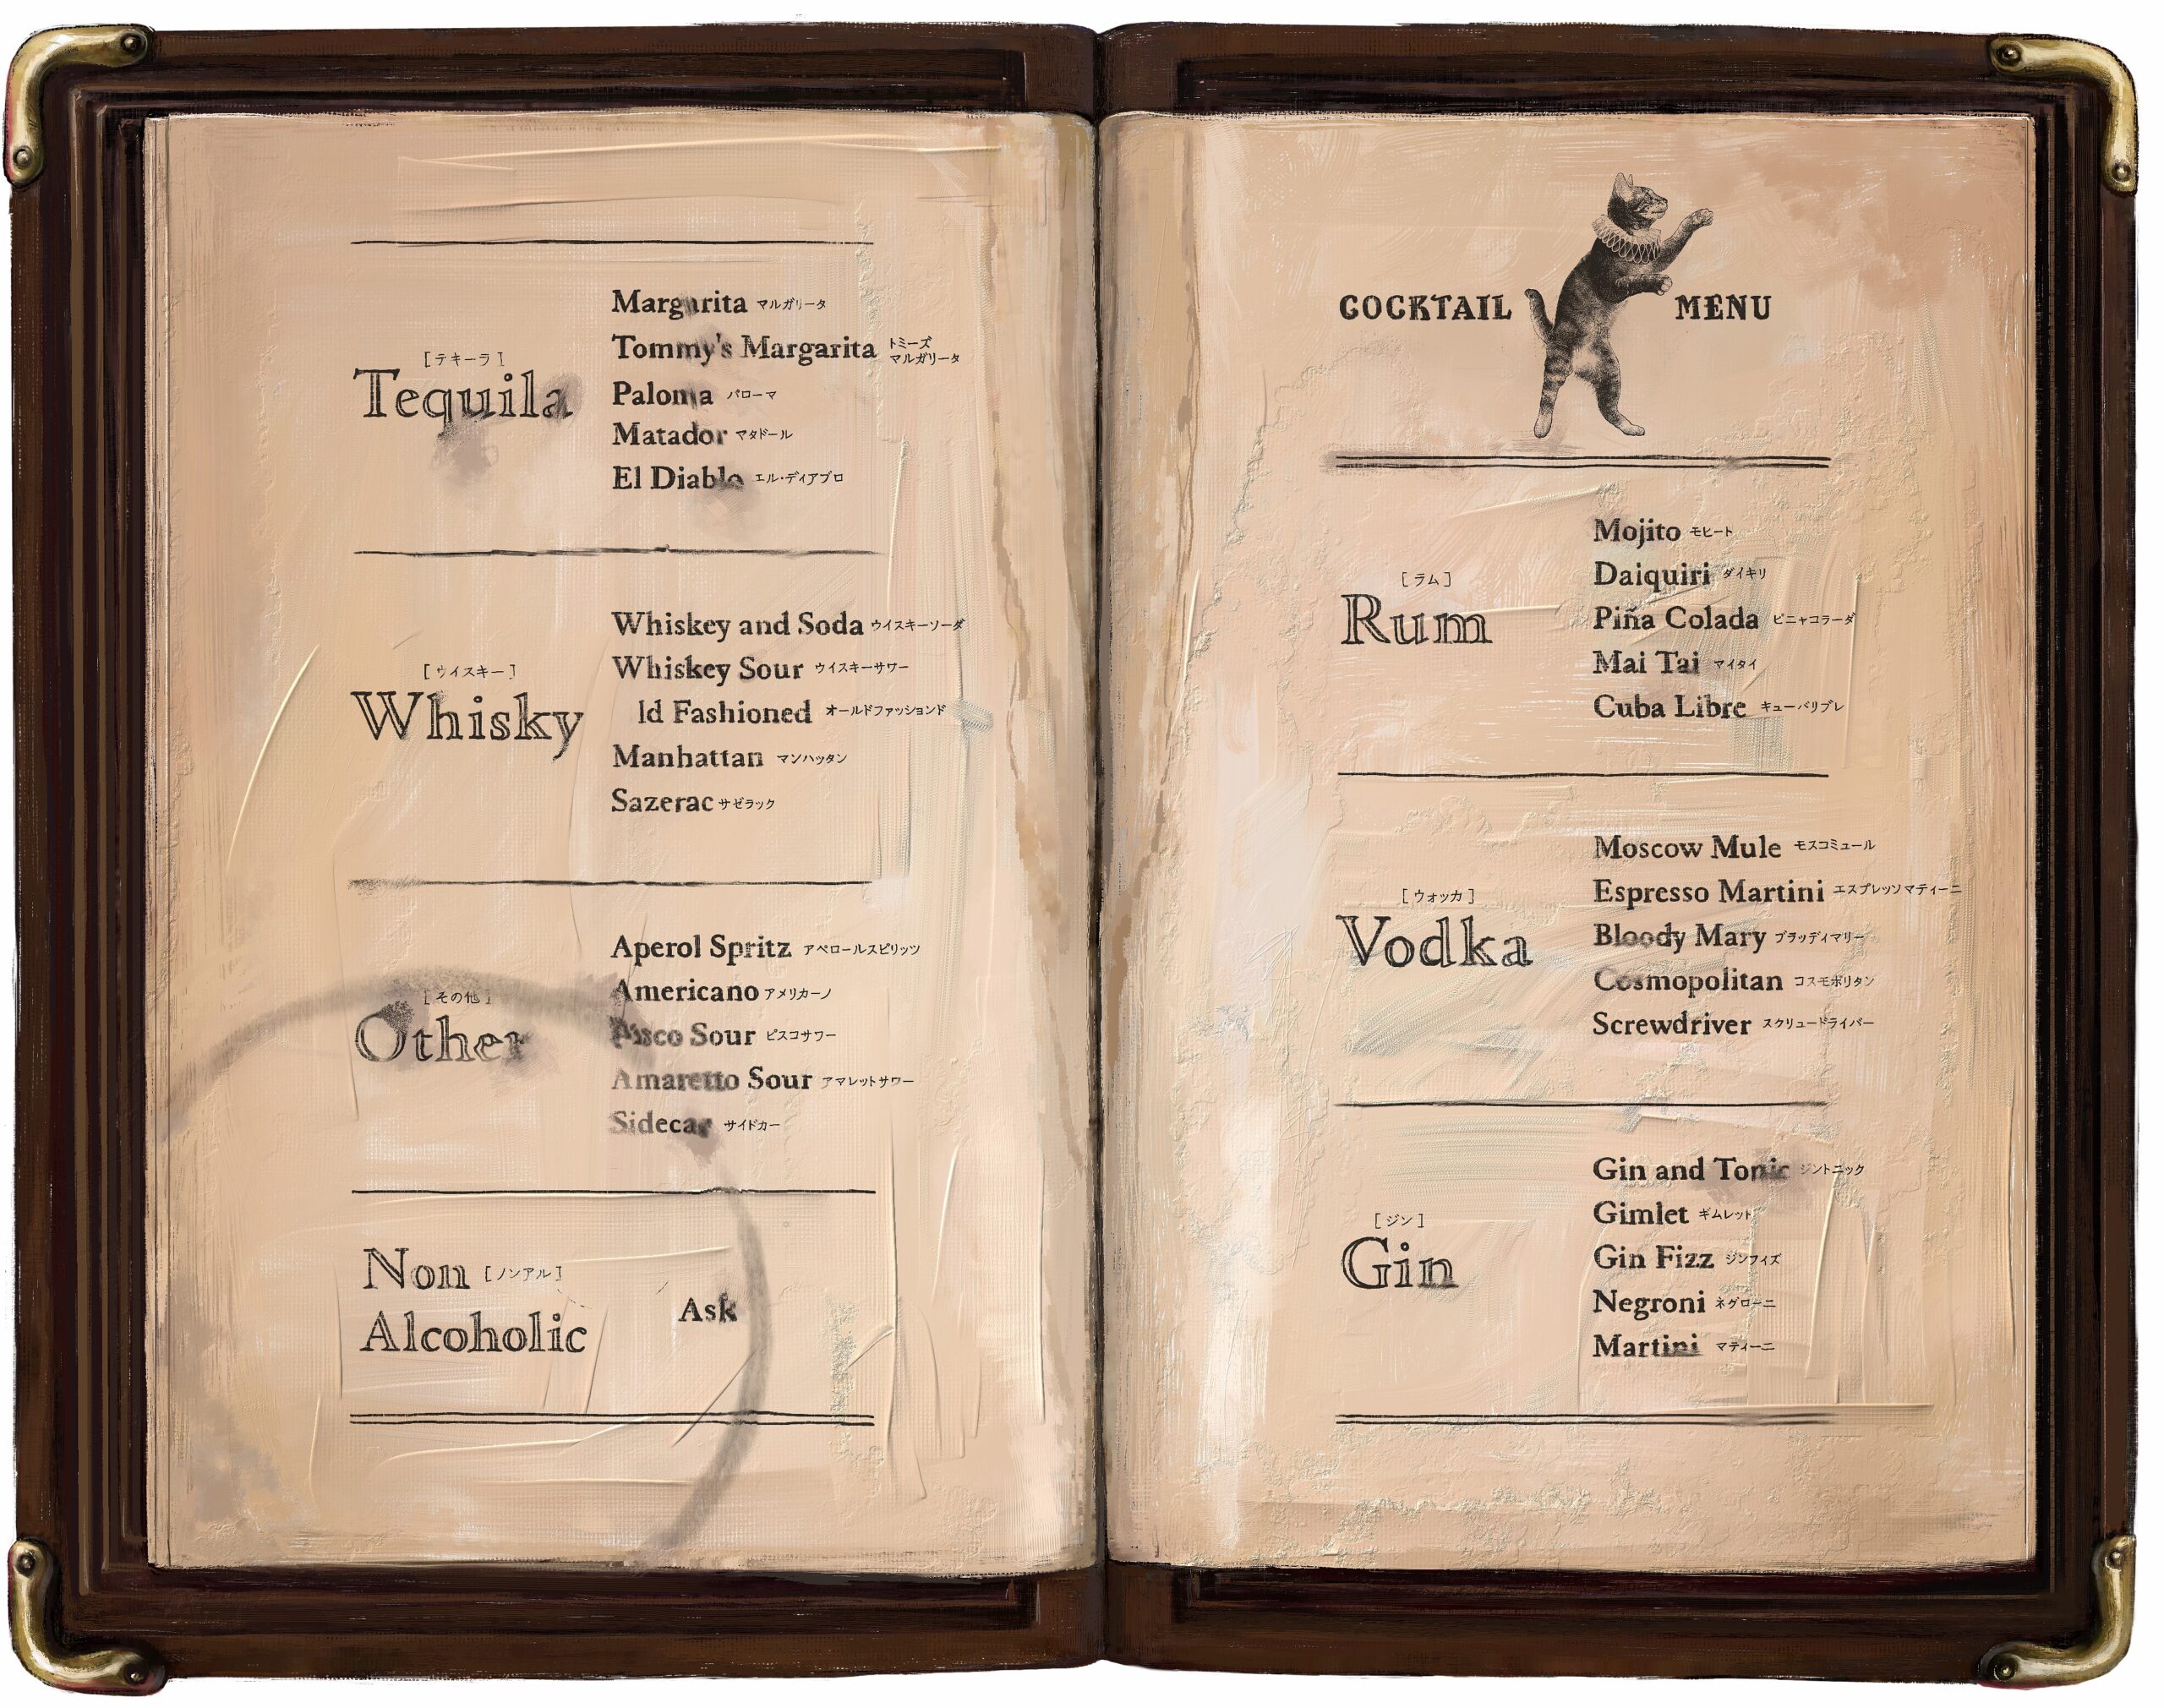 [テキーラ]
Tequila
Margarita マルガリータ
Tommy's Margarita トミーズ マルガリータ
Paloma パローマ
Matador マタドール
El Diablo エル・ディアブロ
[ウイスキー]
Whisky
Whiskey and Soda ウイスキーソーダ
Whiskey Sour ウイスキーサワー
ld Fashioned オールドファッションド
Manhattan マンハッタン
Sazerac サゼラック
[その他]
Other
Aperol Spritz アペロールスピリッツ
Americano アメリカーノ
Pisco Sour ピスコサワー
Amaretto Sour アマレットサワー
Sidecar サイドカー
Non [ノンアル]
Alcoholic
Ask
COCKTAIL MENU
[ラム]
Rum
Mojito モヒート
Daiquiri ダイキリ
Piña Colada ピニャコラーダ
Mai Tai マイタイ
Cuba Libre キューバリブレ
[ウォッカ]
Vodka
Moscow Mule モスコミュール
Espresso Martini エスプレッソマティーニ
Bloody Mary ブラッディマリー
Cosmopolitan コスモポリタン
Screwdriver スクリュードライバー
[ジン]
Gin
Gin and Tonic ジントニック
Gimlet ギムレット
Gin Fizz ジンフィズ
Negroni ネグローニ
Martini マティーニ